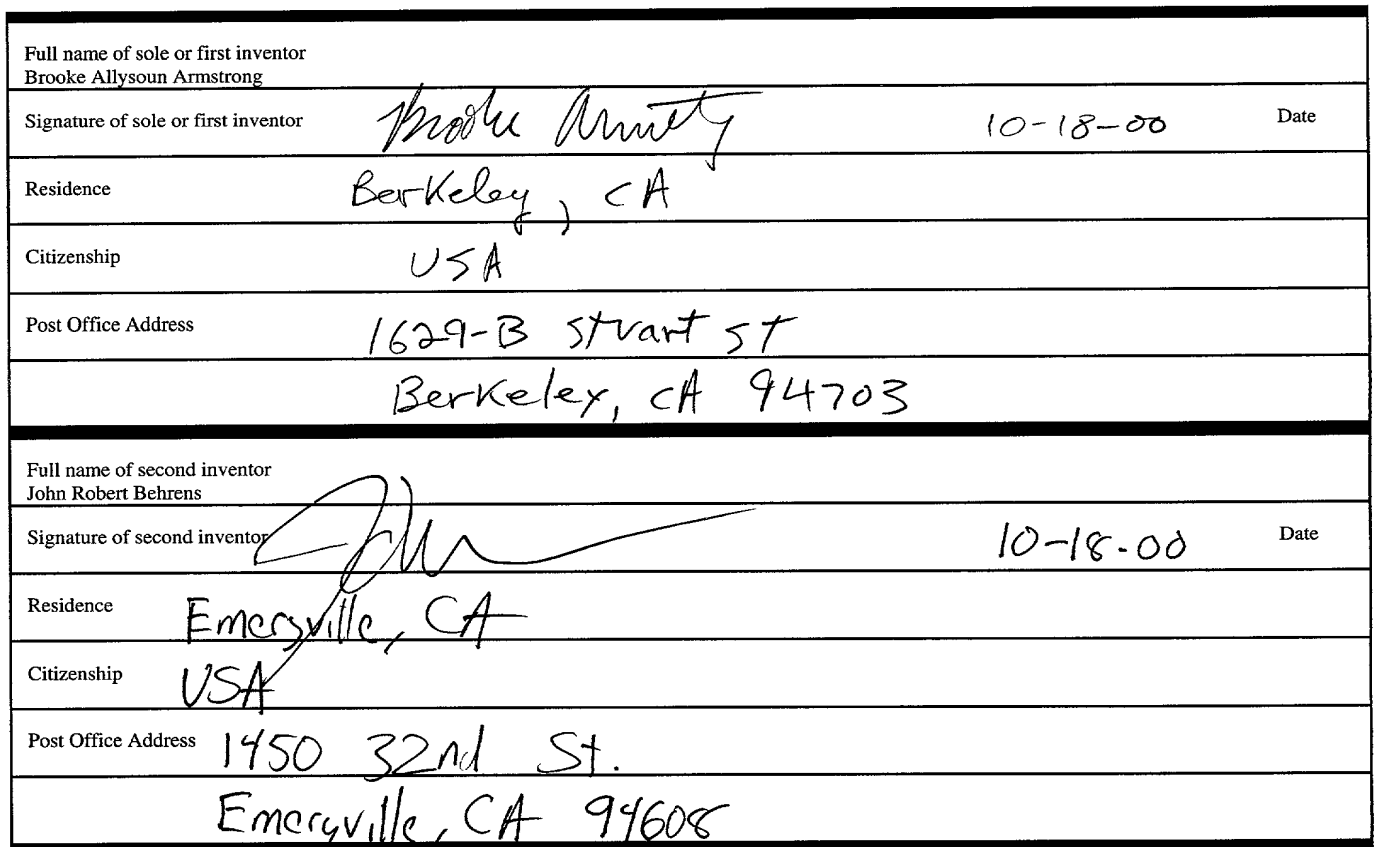 Full name of sole or first inventor
Brooke Allysoun Armstrong
Signature of sole or first inventor Brooke 10-18-00 Date
Residence Berkeley, CA
Citizenship USA
Post Office Address 1629-B Stuart St
Berkeley, CA 94703
Full name of second inventor
John Robert Behrens
Signature of second inventor 10-18-00 Date
Residence Emeryville, CA
Citizenship USA
Post Office Address 1450 32nd St.
Emeryville, CA 94608